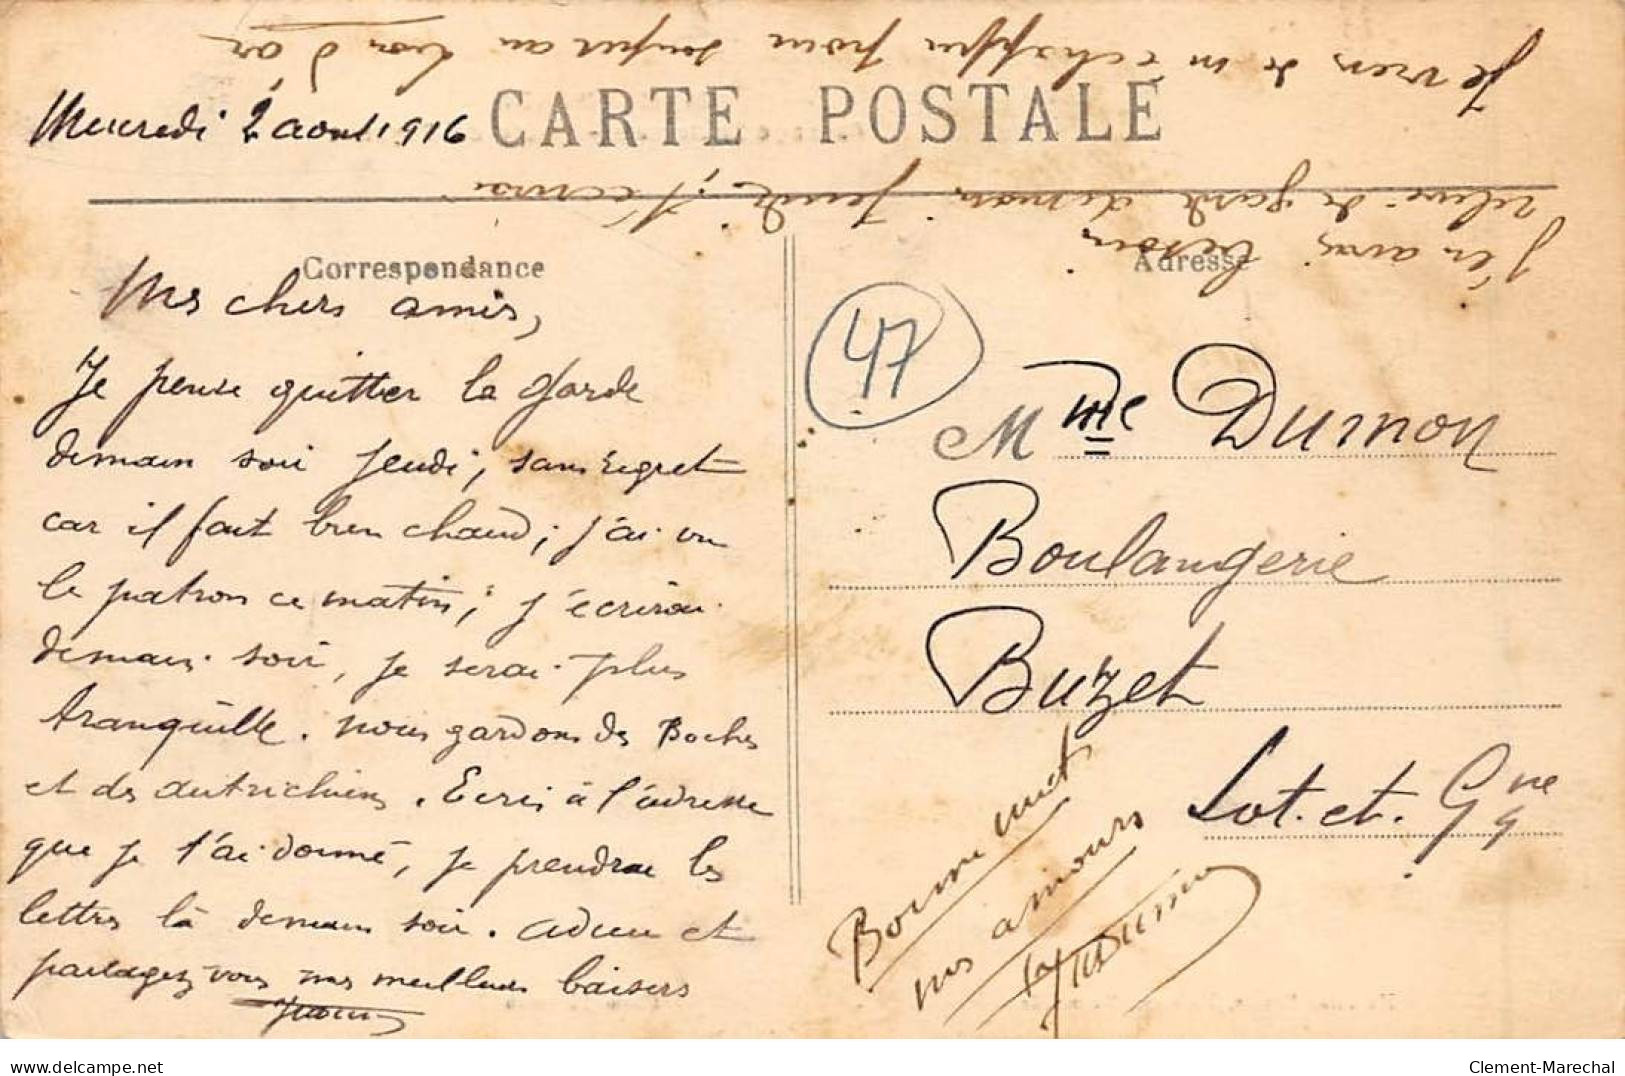 Mercredi 2 aout 1916
CARTE POSTALE
Je viens de m'échapper pour souper au Lion d'or
relevé de garde demain jeudi, j'écrirai
J'en avais besoin
Correspondance
Mes chers amis,
Je pense quitter la garde
demain soir jeudi, sans regret
car il fait bien chaud ; j'ai vu
le patron ce matin ; j'écrirai
demain soir, je serai plus
tranquille. nous gardons des Boches
et des autrichiens. Ecris à l'adresse
que je t'ai donné, je prendrai les
lettres là demain soir. adieu et
partagez vous mes meilleurs baisers
Adresse
47
Mme Dumon
Boulangerie
Buzet
Lot. et. Gne
Bonne nuit
mes amours
Clement-Marechal
delcampe.net